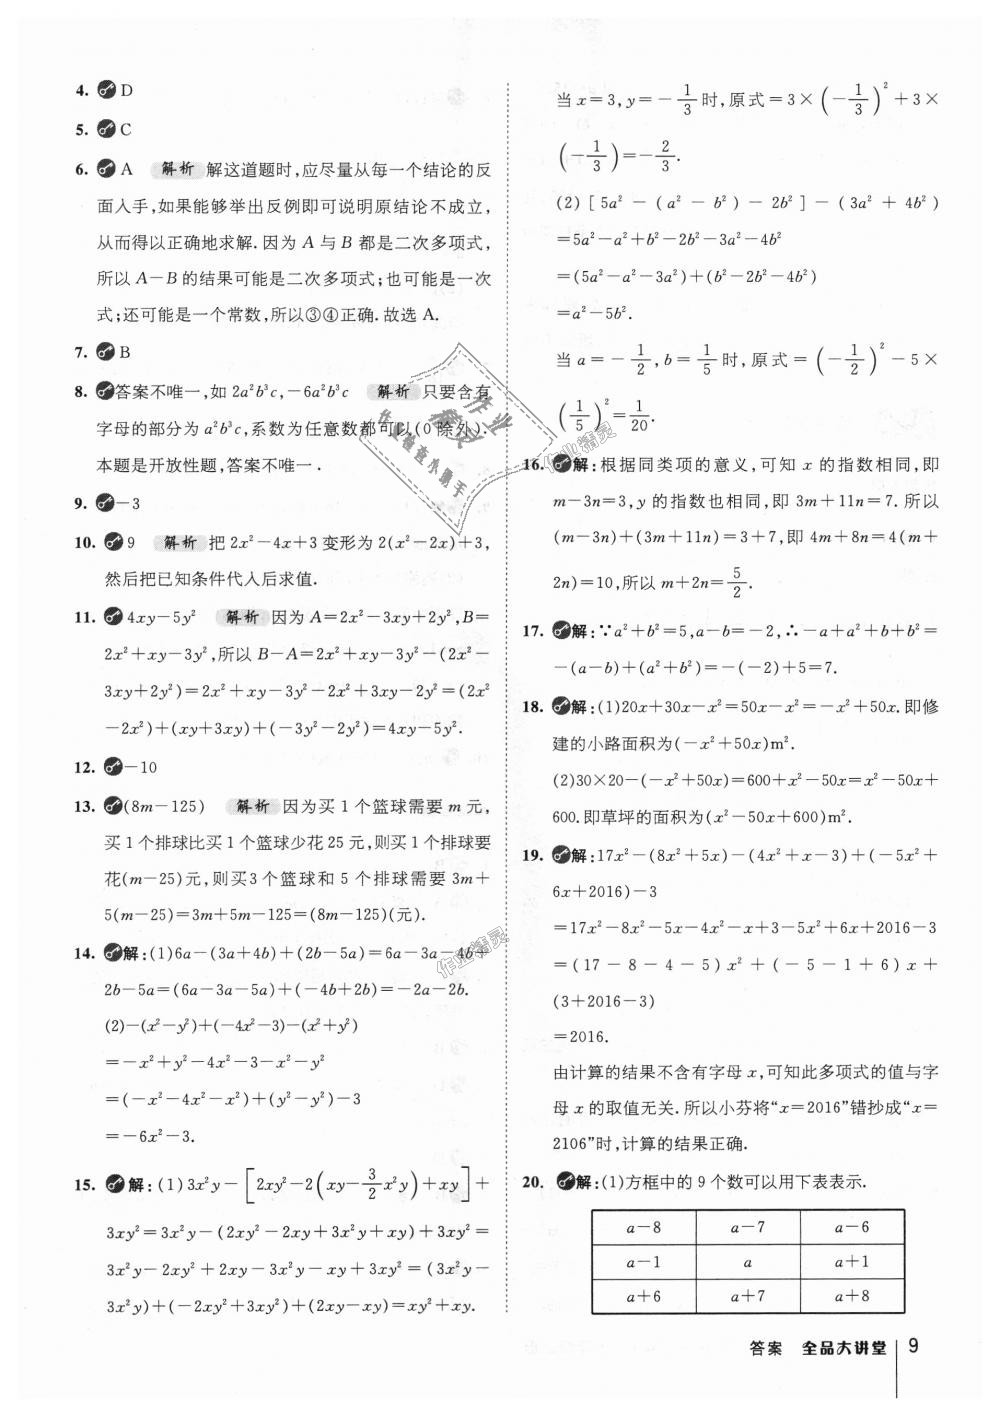 4. D
5. C
6. A 解析 解这道题时,应尽量从每一个结论的反
面入手,如果能够举出反例即可说明原结论不成立,
从而得以正确地求解.因为 A 与 B 都是二次多项式,
所以 A－B 的结果可能是二次多项式;也可能是一次
式;还可能是一个常数,所以③④正确.故选 A.
7. B
8. 答案不唯一,如 2a²b³c,－6a²b³c 解析 只要含有
字母的部分为 a²b³c,系数为任意数都可以(0 除外).
本题是开放性题,答案不唯一.
9. －3
10. 9 解析 把 2x²－4x＋3 变形为 2(x²－2x)＋3,
然后把已知条件代入后求值.
11. 4xy－5y² 解析 因为 A＝2x²－3xy＋2y²,B＝
2x²＋xy－3y²,所以 B－A＝2x²＋xy－3y²－(2x²－
3xy＋2y²)＝2x²＋xy－3y²－2x²＋3xy－2y²＝(2x²
－2x²)＋(xy＋3xy)＋(－3y²－2y²)＝4xy－5y².
12. －10
13. (8m－125) 解析 因为买 1 个篮球需要 m 元,
买 1 个排球比买 1 个篮球少花 25 元,则买 1 个排球要
花(m－25)元,则买3 个篮球和 5 个排球需要 3m＋
5(m－25)＝3m＋5m－125＝(8m－125)(元).
14. 解:(1)6a－(3a＋4b)＋(2b－5a)＝6a－3a－4b＋
2b－5a＝(6a－3a－5a)＋(－4b＋2b)＝－2a－2b.
(2)－(x²－y²)＋(－4x²－3)－(x²＋y²)
＝－x²＋y²－4x²－3－x²－y²
＝(－x²－4x²－x²)＋(y²－y²)－3
＝－6x²－3.
15. 解:(1)3x²y－[2xy²－2(xy－3/2x²y)＋xy]＋
3xy²＝3x²y－(2xy²－2xy＋3x²y＋xy)＋3xy²＝
3x²y－2xy²＋2xy－3x²y－xy＋3xy²＝(3x²y－
3x²y)＋(－2xy²＋3xy²)＋(2xy－xy)＝xy²＋xy.
当 x＝3,y＝－1/3时,原式＝3×(－1/3)²＋3×
(－1/3)＝－2/3.
(2)[5a²－(a²－b²)－2b²]－(3a²＋4b²)
＝5a²－a²＋b²－2b²－3a²－4b²
＝(5a²－a²－3a²)＋(b²－2b²－4b²)
＝a²－5b².
当 a＝－1/2,b＝1/5时,原式＝(－1/2)²－5×
(1/5)²＝1/20.
16. 解:根据同类项的意义,可知 x 的指数相同,即
m－3n＝3,y 的指数也相同,即 3m＋11n＝7.所以
(m－3n)＋(3m＋11n)＝3＋7,即 4m＋8n＝4(m＋
2n)＝10,所以 m＋2n＝5/2.
17. 解:∵a²＋b²＝5,a－b＝－2,∴－a＋a²＋b＋b²＝
－(a－b)＋(a²＋b²)＝－(－2)＋5＝7.
18. 解:(1)20x＋30x－x²＝50x－x²＝－x²＋50x.即修
建的小路面积为(－x²＋50x)m².
(2)30×20－(－x²＋50x)＝600＋x²－50x＝x²－50x＋
600.即草坪的面积为(x²－50x＋600)m².
19. 解:17x²－(8x²＋5x)－(4x²＋x－3)＋(－5x²＋
6x＋2016)－3
＝17x²－8x²－5x－4x²－x＋3－5x²＋6x＋2016－3
＝(17－8－4－5)x²＋(－5－1＋6)x＋
(3＋2016－3)
＝2016.
由计算的结果不含有字母 x,可知此多项式的值与字
母 x 的取值无关.所以小芬将“x＝2016”错抄成“x＝
2106”时,计算的结果正确.
20. 解:(1)方框中的 9 个数可以用下表表示.
a－8 a－7 a－6
a－1 a a＋1
a＋6 a＋7 a＋8
答案 全品大讲堂 9
作业
精灵
作业检查小助手
作业精灵
作业精灵